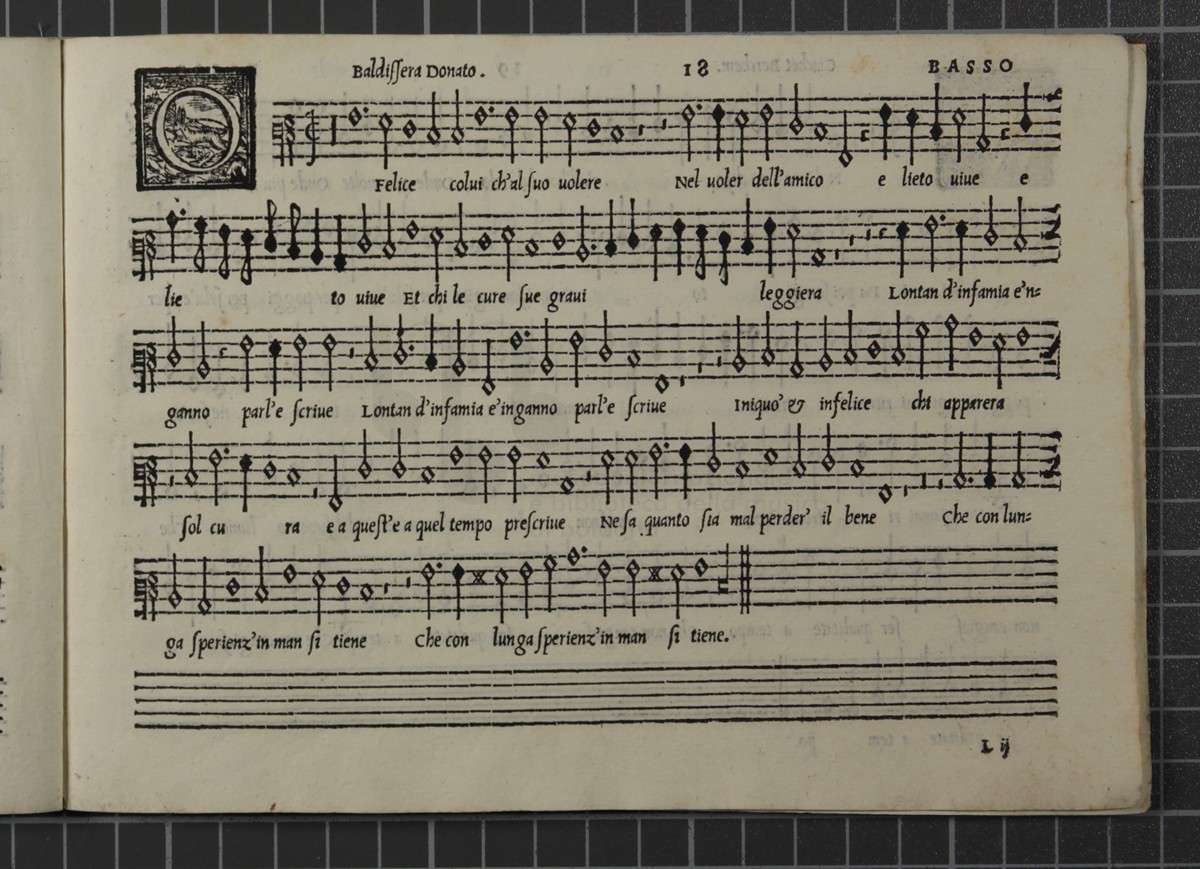 Baldissera Donato. 18 BASSO
O Felice colui ch'al suo uolere Nel uoler dell'amico e lieto uiue e
lie to uiue Et chi le cure sue graui leggiera Lontan d'infamia e'n=
ganno parl'e scriue Lontan d'infamia e'inganno parl'e scriue Iniquo' & infelice chi apparera
sol cu ra e a quest'e a quel tempo prescriue Ne sa quanto sia mal perder' il bene Che con lun=
ga sperienz'in man si tiene Che con lunga sperienz'in man si tiene.
L ij